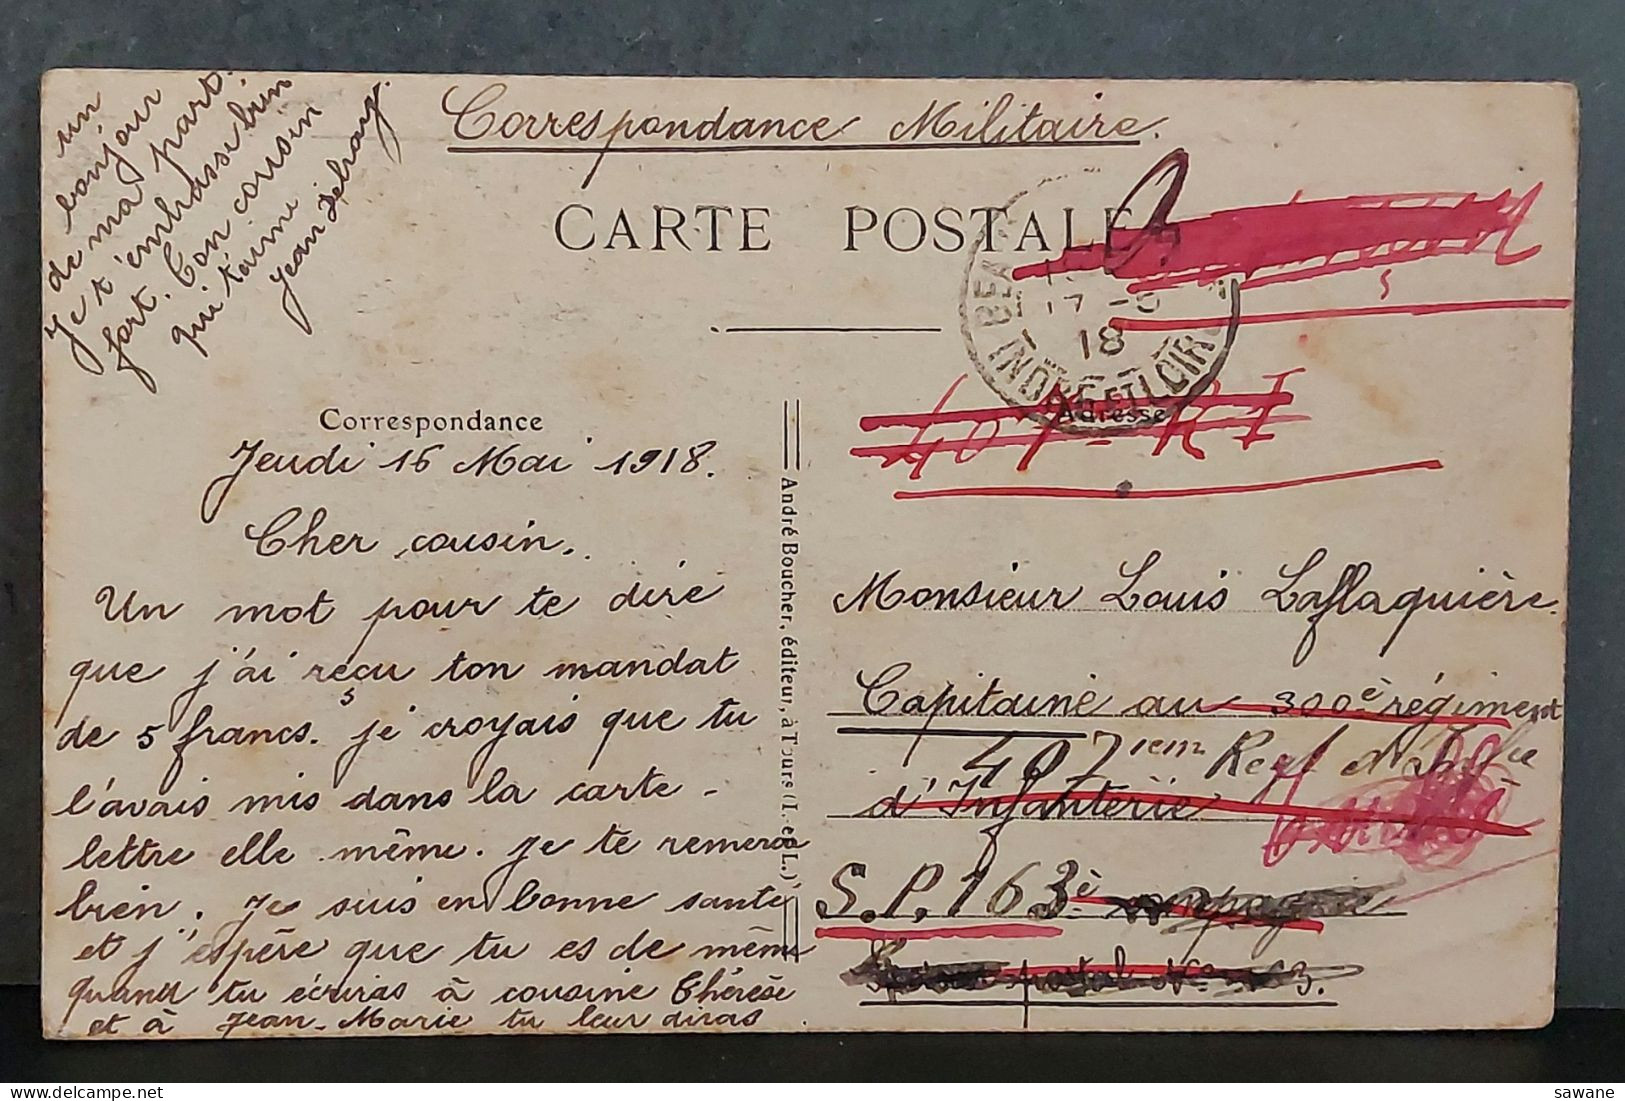 Correspondance Militaire.
CARTE POSTALE
18
INDRE ET LOIRE
Correspondance
Adresse
Jeudi 16 Mai 1918.
Cher cousin.
Un mot pour te dire
que j'ai reçu ton mandat
de 5 francs. je croyais que tu
l'avais mis dans la carte -
lettre elle même. Je te remercie
bien. Je suis en bonne santé
et j'espère que tu es de même
quand tu écriras à cousine Thérèse
et à Jean-Marie tu leur diras
un
bonjour
de ma part.
Je t'embrasse bien
fort. Ton cousin
qui t'aime
Jean
André Boucher, éditeur, à Tours (I. et L.)
Monsieur Louis Laflaquière.
Capitaine au 300è régiment
407iem Regt
d'Infanterie
S.P. 163
è compagnie
postal
sawane